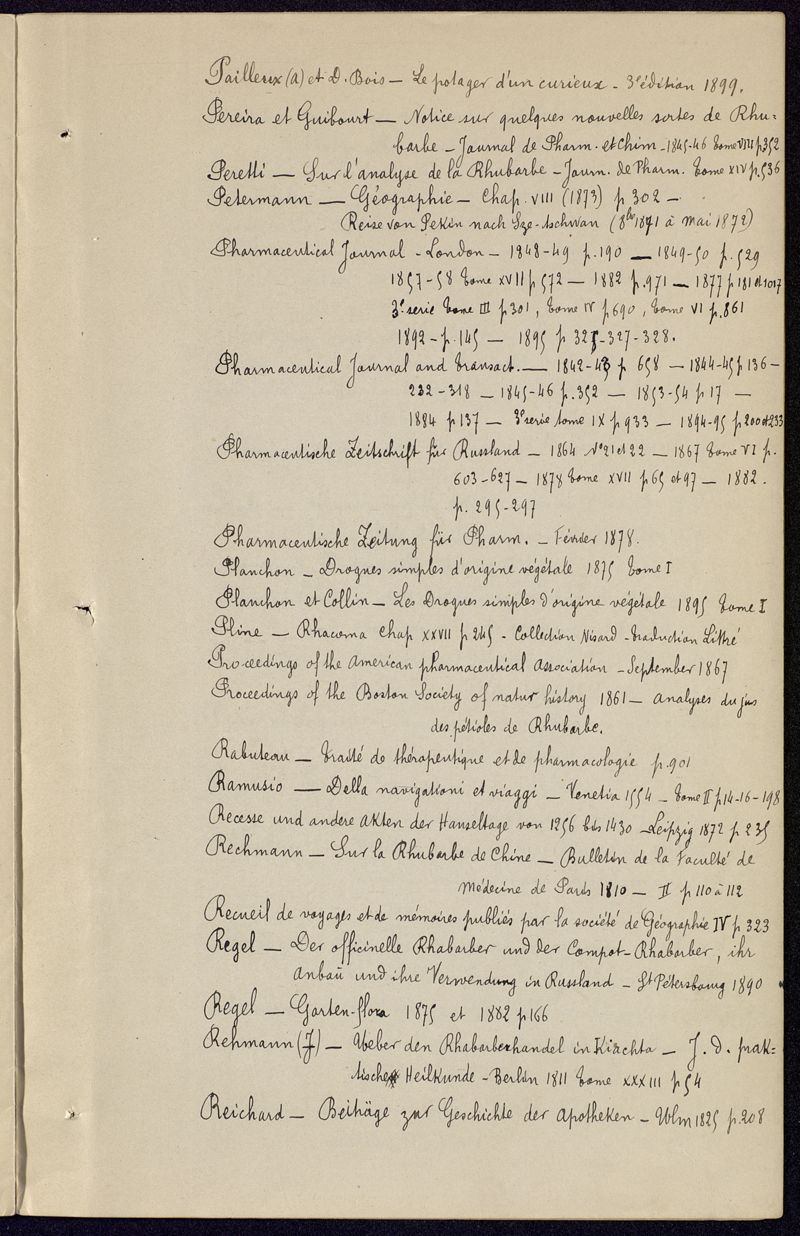 Pailleux (A) et D. Bois — Le potager d'un curieux - 3e édition 1899.
Pereira et Guibourt — Notice sur quelques nouvelles sortes de Rhu-
barbe — Journal de Pharm. et Chim - 1845-46 tome VIII p 352
Peretti — Sur l'analyse de la Rhubarbe - Journ. de Pharm. tome XIV p. 536
Petermann — Géographie — Chap. VIII (1873) p 302 —
Reise von Pekin nach Sze-tschwan (8bre 1871 à mai 1872)
Pharmaceutical Journal - London — 1848-49 p. 190 — 1849-50 p. 529
1857-58 tome XVII p 572 — 1882 p. 971 — 1877 p 181 et 1017
3e serie tome III p 301, tome IV p 690, tome VI p. 861
1892 - p. 145 — 1895 p 325-327-328.
Pharmaceutical Journal and transact. — 1842-43 p 658 — 1844-45 p 136 -
232-318 — 1845-46 p. 352 — 1853-54 p 17 —
1884 p 137 — 3e serie tome IX p 933 — 1894-95 p 200 et 233
Pharmaceutische Zeitschrift für Russland — 1864 No 21 et 22 — 1867 tome VI p.
603-627 — 1878 tome XVII p 65 et 97 — 1882.
p. 295-297
Pharmaceutische Zeitung für Pharm. — Février 1878.
Planchon — Drogues simples d'origine végétale 1875 tome I
Planchon et Collin — Les Drogues simples d'origine végétale 1895 tome I
Pline — Rhacoma chap XXVII p 245 - Collection Nisard - traduction Littré
Proceedings of the American pharmaceutical Association — September 1867
Proceedings of the Boston Society of natur history 1861 — analyses du jus
des pétioles de Rhubarbe.
Rabuteau — traité de thérapeutique et de pharmacologie p. 901
Ramusio — Della navigationi et viaggi — Venetia 1554 — tome II p 14-16-198
Recesse und andere Akten der Hanseltage von 1256 bis 1430 — Leipzig 1872 p 235
Rechmann — Sur la Rhubarbe de Chine — Bulletin de la Faculté de
Médecine de Paris 1810 — II p 110 à 112
Recueil de voyages et de mémoires publiés par la société de Géographie IV p 323
Regel — Der officinelle Rhabarber und der Compot-Rhabarber, ihr
Anbau und ihre Verwendung in Russland — St Pétersbourg 1890
Regel — Garten-flora 1875 et 1882 p 166
Rehmann (J) — Ueber den Rhabarberhandel in Kiachta — J. d. prak-
tischen Heilkunde - Berlin 1811 tome XXXIII p 54
Reichard — Beiträge zur Geschichte der Apotheken — Ulm 1825 p. 208